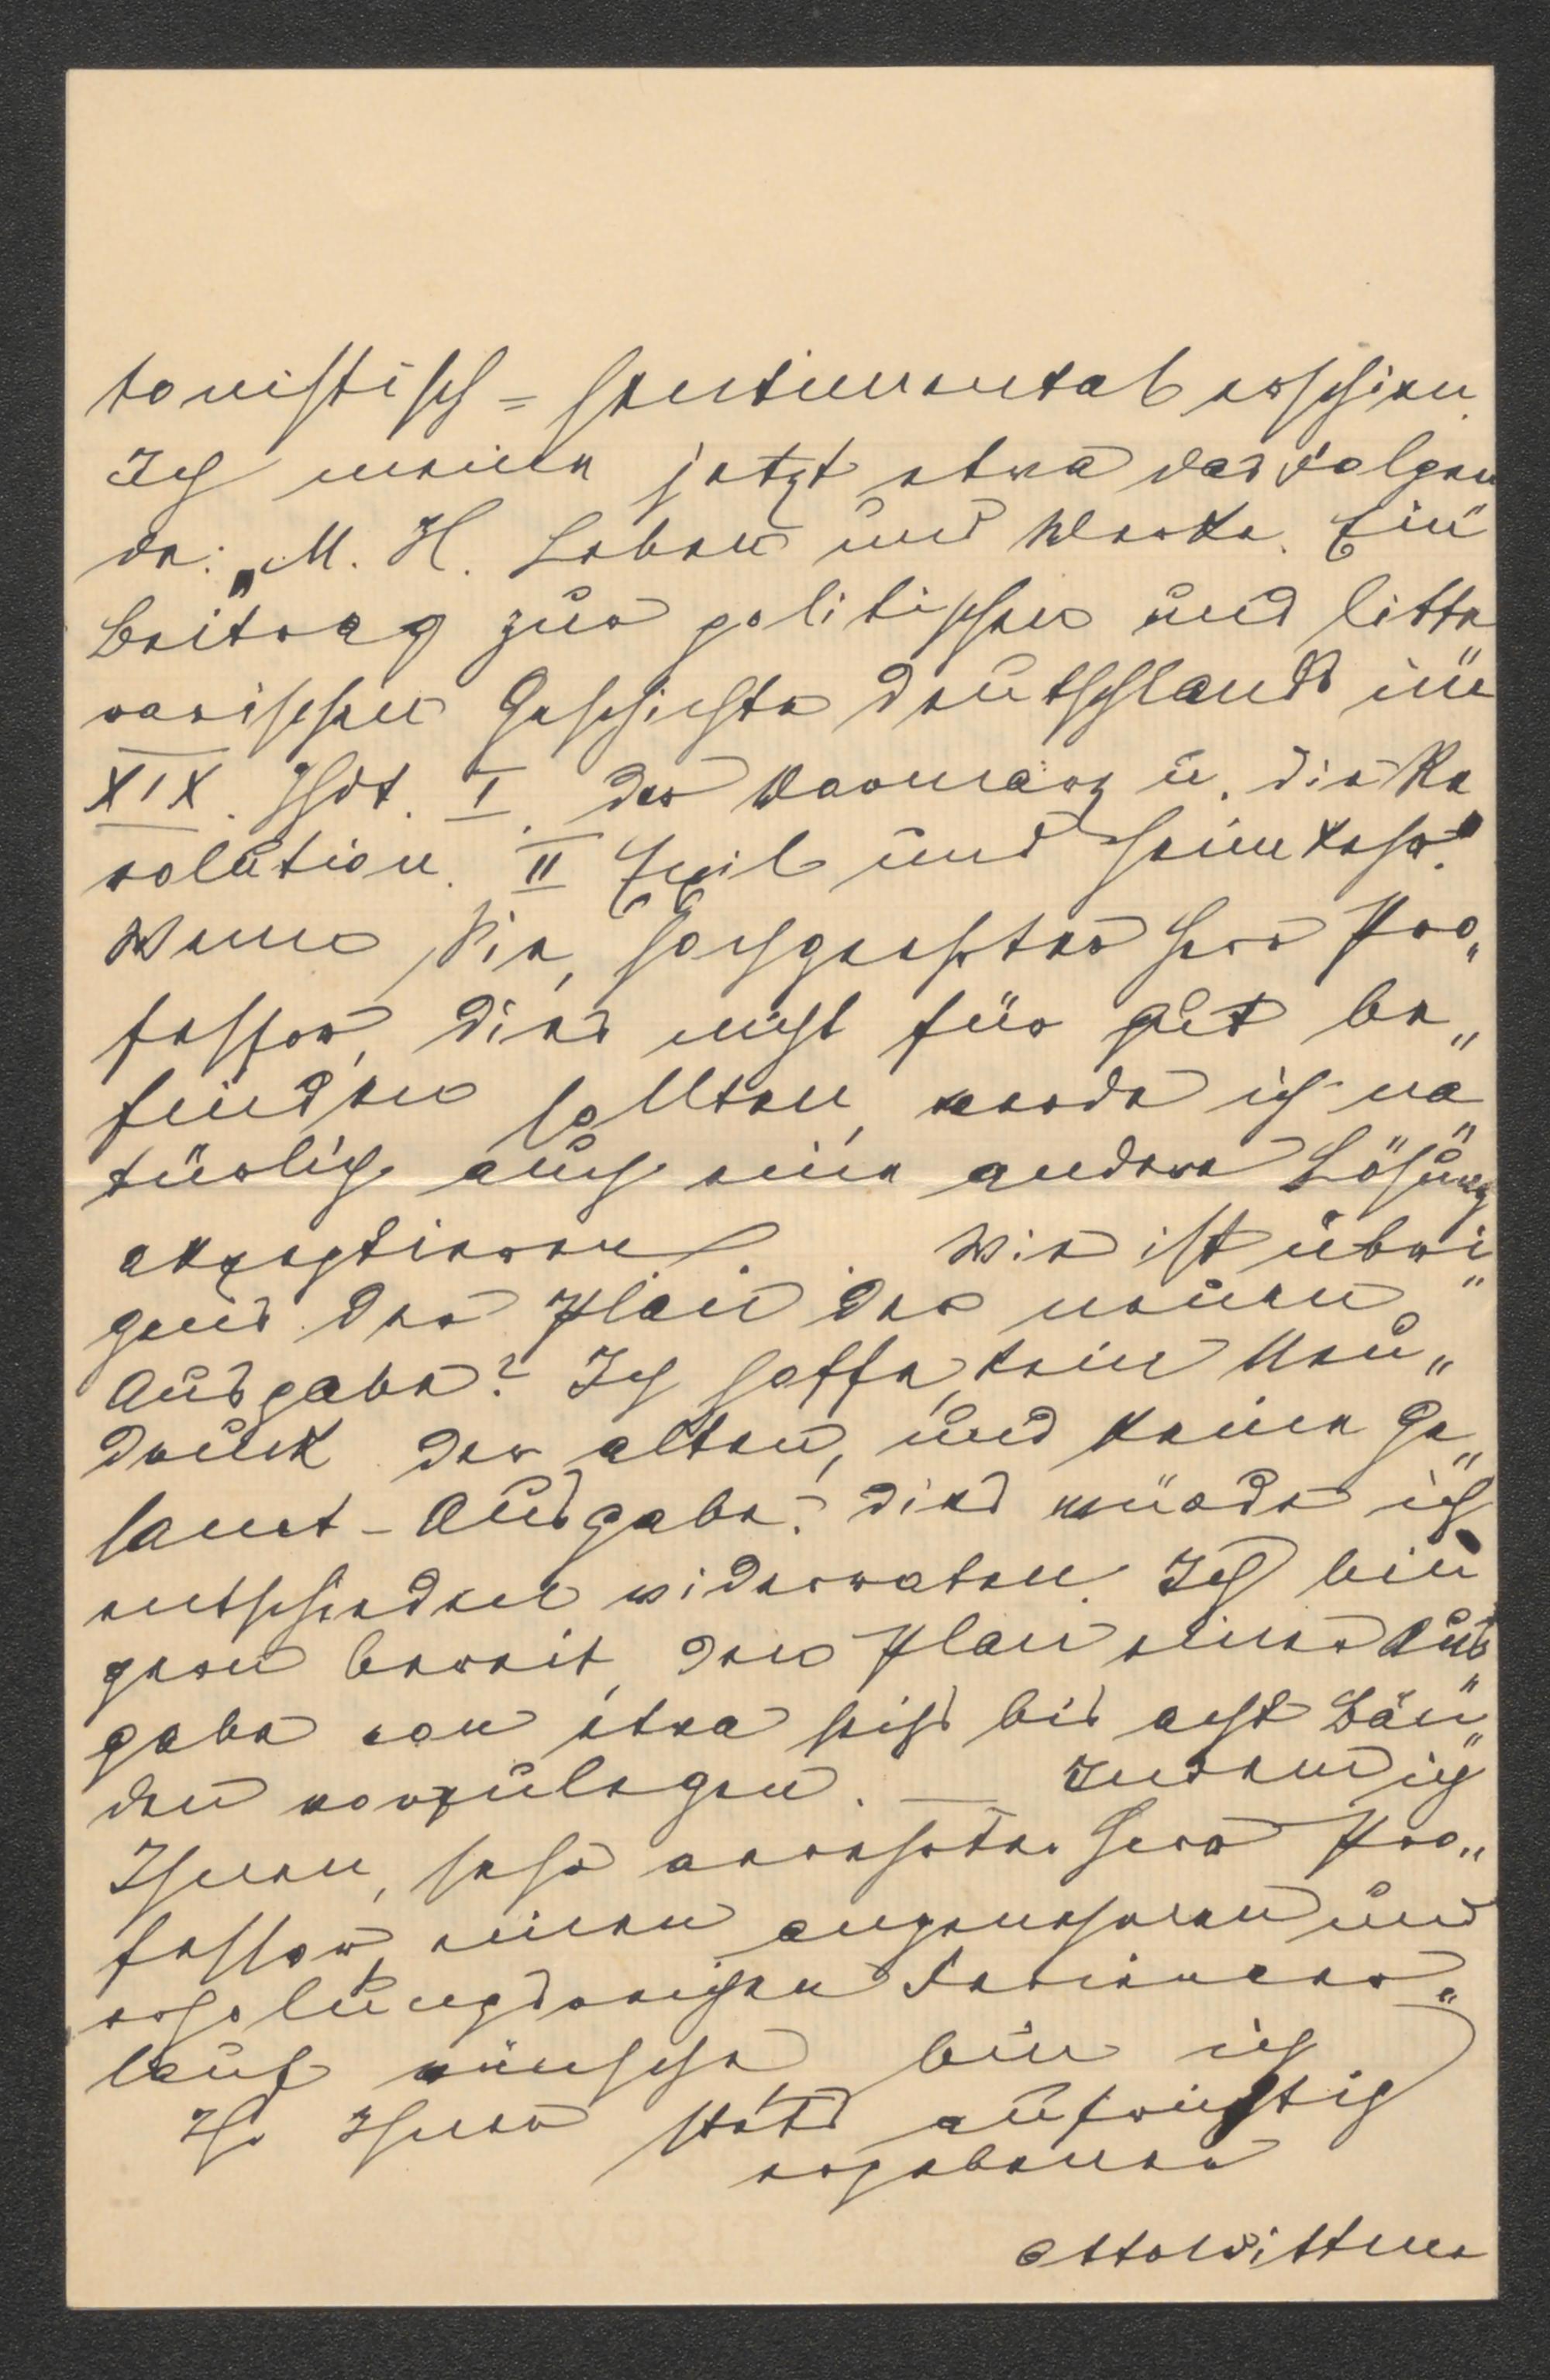 tonistisch = sentimental erschien.
Ich meine jetzt etwa das Folgen
de: „M. H. Leben und Werke. Ein
Beitrag zur politischen und litte„
rarischen Geschichte Deutschlands im
XIX. Jhdt. I. Der Vormärz u. die Re
volution. II Exil und Heimkehr."
Wenn Sie, hochgeehrter Herr Pro„
fessor, dies nicht für gut be„
finden sollten, werde ich na„
türlich auch eine andere Lösung
akzeptieren. Wie ist übri„
gens der Plan der neuen
Ausgabe? Ich hoffe, kein Neu„
druck der alten, und keine Ge„
samt-Ausgabe! Dies würde ich
entschieden widerraten. Ich bin
gern bereit, den Plan einer Aus„
gabe von etwa sechs bis acht Bän„
den vorzulegen. — Indem ich
Ihnen, sehr verehrter Herr Pro„
fessor, einen angenehmen und
erholungsreichen Ferienver„
lauf wünsche bin ich
Ihr Ihnen stets aufrichtig
ergebener
Otto Wittner